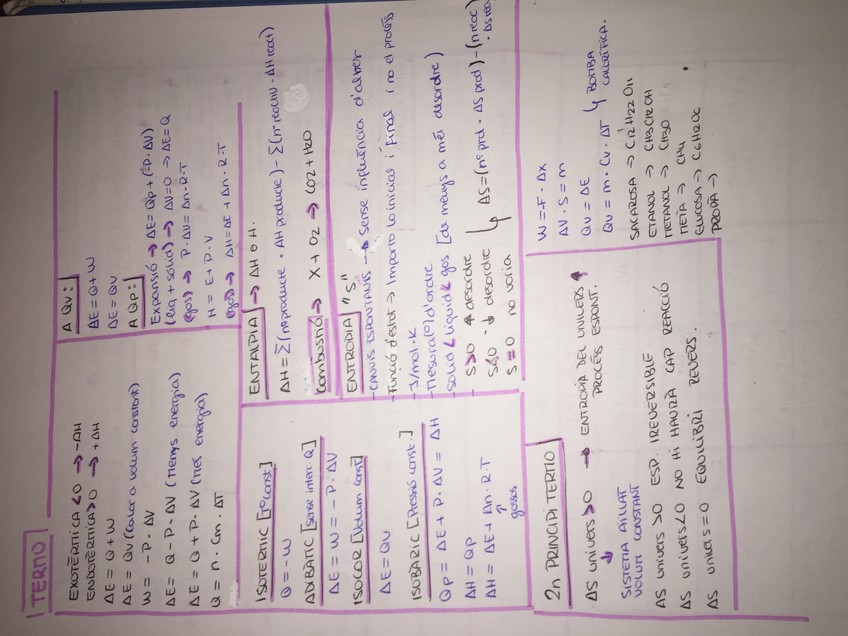 TERMO
EXOTÈRMICA <0 → -ΔH
ENDOTÈRMICA >0 → +ΔH
ΔE = Q+W
ΔE = QV (calor a volum constant)
W = -P · ΔV
ΔE = Q-P · ΔV (menys energia)
ΔE = Q+P · ΔV (més energia)
Q = n · Cm · ΔT
A QV:
ΔE = Q+W
ΔE = QV
A QP:
Expansió → ΔE = QP + (-P · ΔV)
(líq + sòlid) → ΔV=0 → ΔE = Q
(gas) → P · ΔV = Δn · R · T
H = E + P · V
(gas) → ΔH = ΔE + Δn · R · T
ISOTERMIC [Tª const]
Q = -W
ADIBÀTIC [sense interc. Q]
ΔE = W = -P · ΔV
ISOCOR [Volum const]
ΔE = QV
ISOBÀRIC [Pressió const.]
QP = ΔE + P · ΔV = ΔH
ΔH = QP
ΔH = ΔE + Δn · R · T
gasos
ENTALPIA → ΔH o H.
ΔH = Σ(nº producte · ΔH producte) - Σ(nº reactiu · ΔH react)
Combustió → X + O2 → CO2 + H2O
ENTROPIA "S"
- CANVIS ESPONTANIS → Sense influència d'altres
- Funció d'estat → Importa lo inicial i final i no el procés
- J/mol · K
- Mesura (º) d'ordre
- sòlid < líquid < gas [de menys a més desordre]
- S>0 ↑ desordre
S<0 - ↓ desordre
S = 0 no varia
ΔS = (nº prod · ΔS prod) - (n reac · ΔS reac)
2n PRINCIPI TERMO
ΔS univers >0 → ENTROPIA DEL UNIVERS ↑
PROCÉS ESPONT.
SISTEMA AÏLLAT
VOLUM CONSTANT
ΔS univers >0 ESP. IREVERSIBLE
ΔS univers <0 NO HI HAURÀ CAP REACCIÓ
ΔS univers = 0 EQUILIBRI REVERS.
W = -F · ΔX
ΔV · S = m
QV = ΔE
QV = m · CV · ΔT ↳ BOMBA
CALORÍFICA.
SACAROSA → C12H22O11
ETANOL → CH3CH2OH
METANOL → CH3O
META → CH4
GLUCOSA → C6H12O6
PROPÀ →